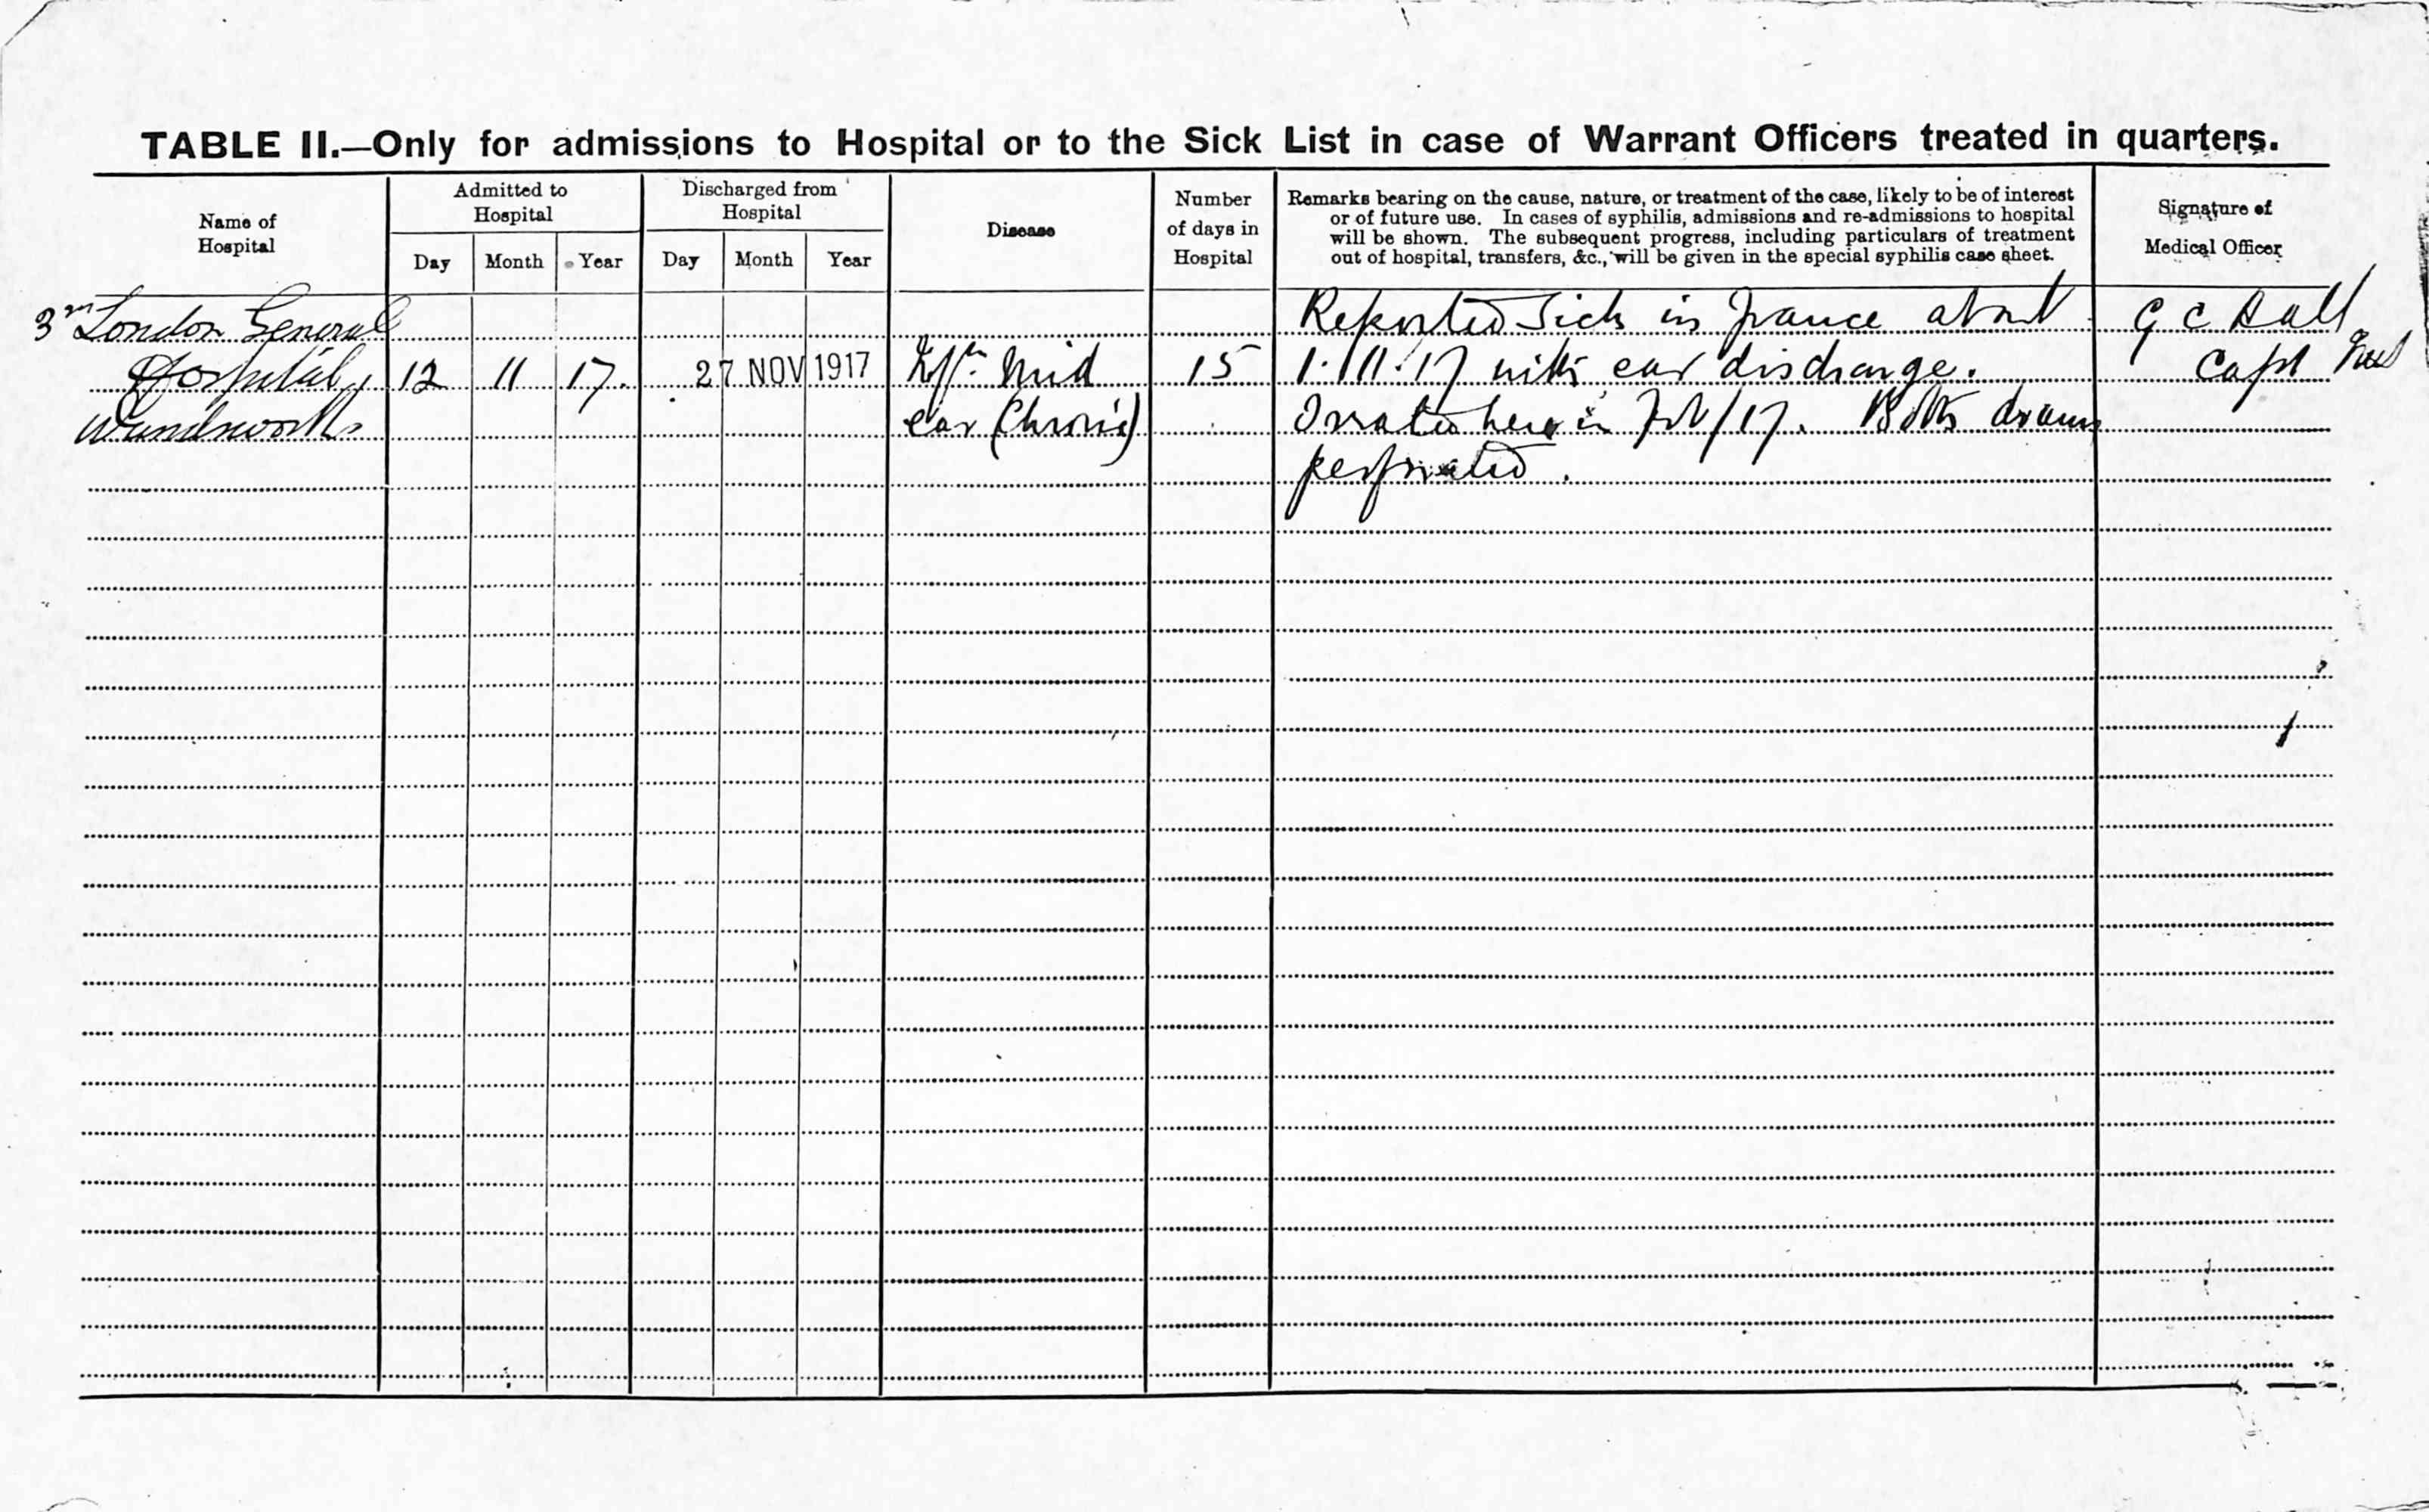 TABLE II.—Only for admissions to Hospital or to the Sick List in case of Warrant Officers treated in quarters.
Name of
Hospital
Admitted to
Hospital
Day Month Year
Discharged from
Hospital
Day Month Year
Disease
Number
of days in
Hospital
Remarks bearing on the cause, nature, or treatment of the case, likely to be of interest
or of future use. In cases of syphilis, admissions and re-admissions to hospital
will be shown. The subsequent progress, including particulars of treatment
out of hospital, transfers, &c., will be given in the special syphilis case sheet.
Signature of
Medical Officer
3rd London General
Hospital,
Wandsworth
12 11 17.
27 NOV 1917
mid
ear (Chronic)
15
Reported Sick in France about
1.11.17 with ear discharge.
here in Feb/17. Both drums
perforated.
G C
Capt